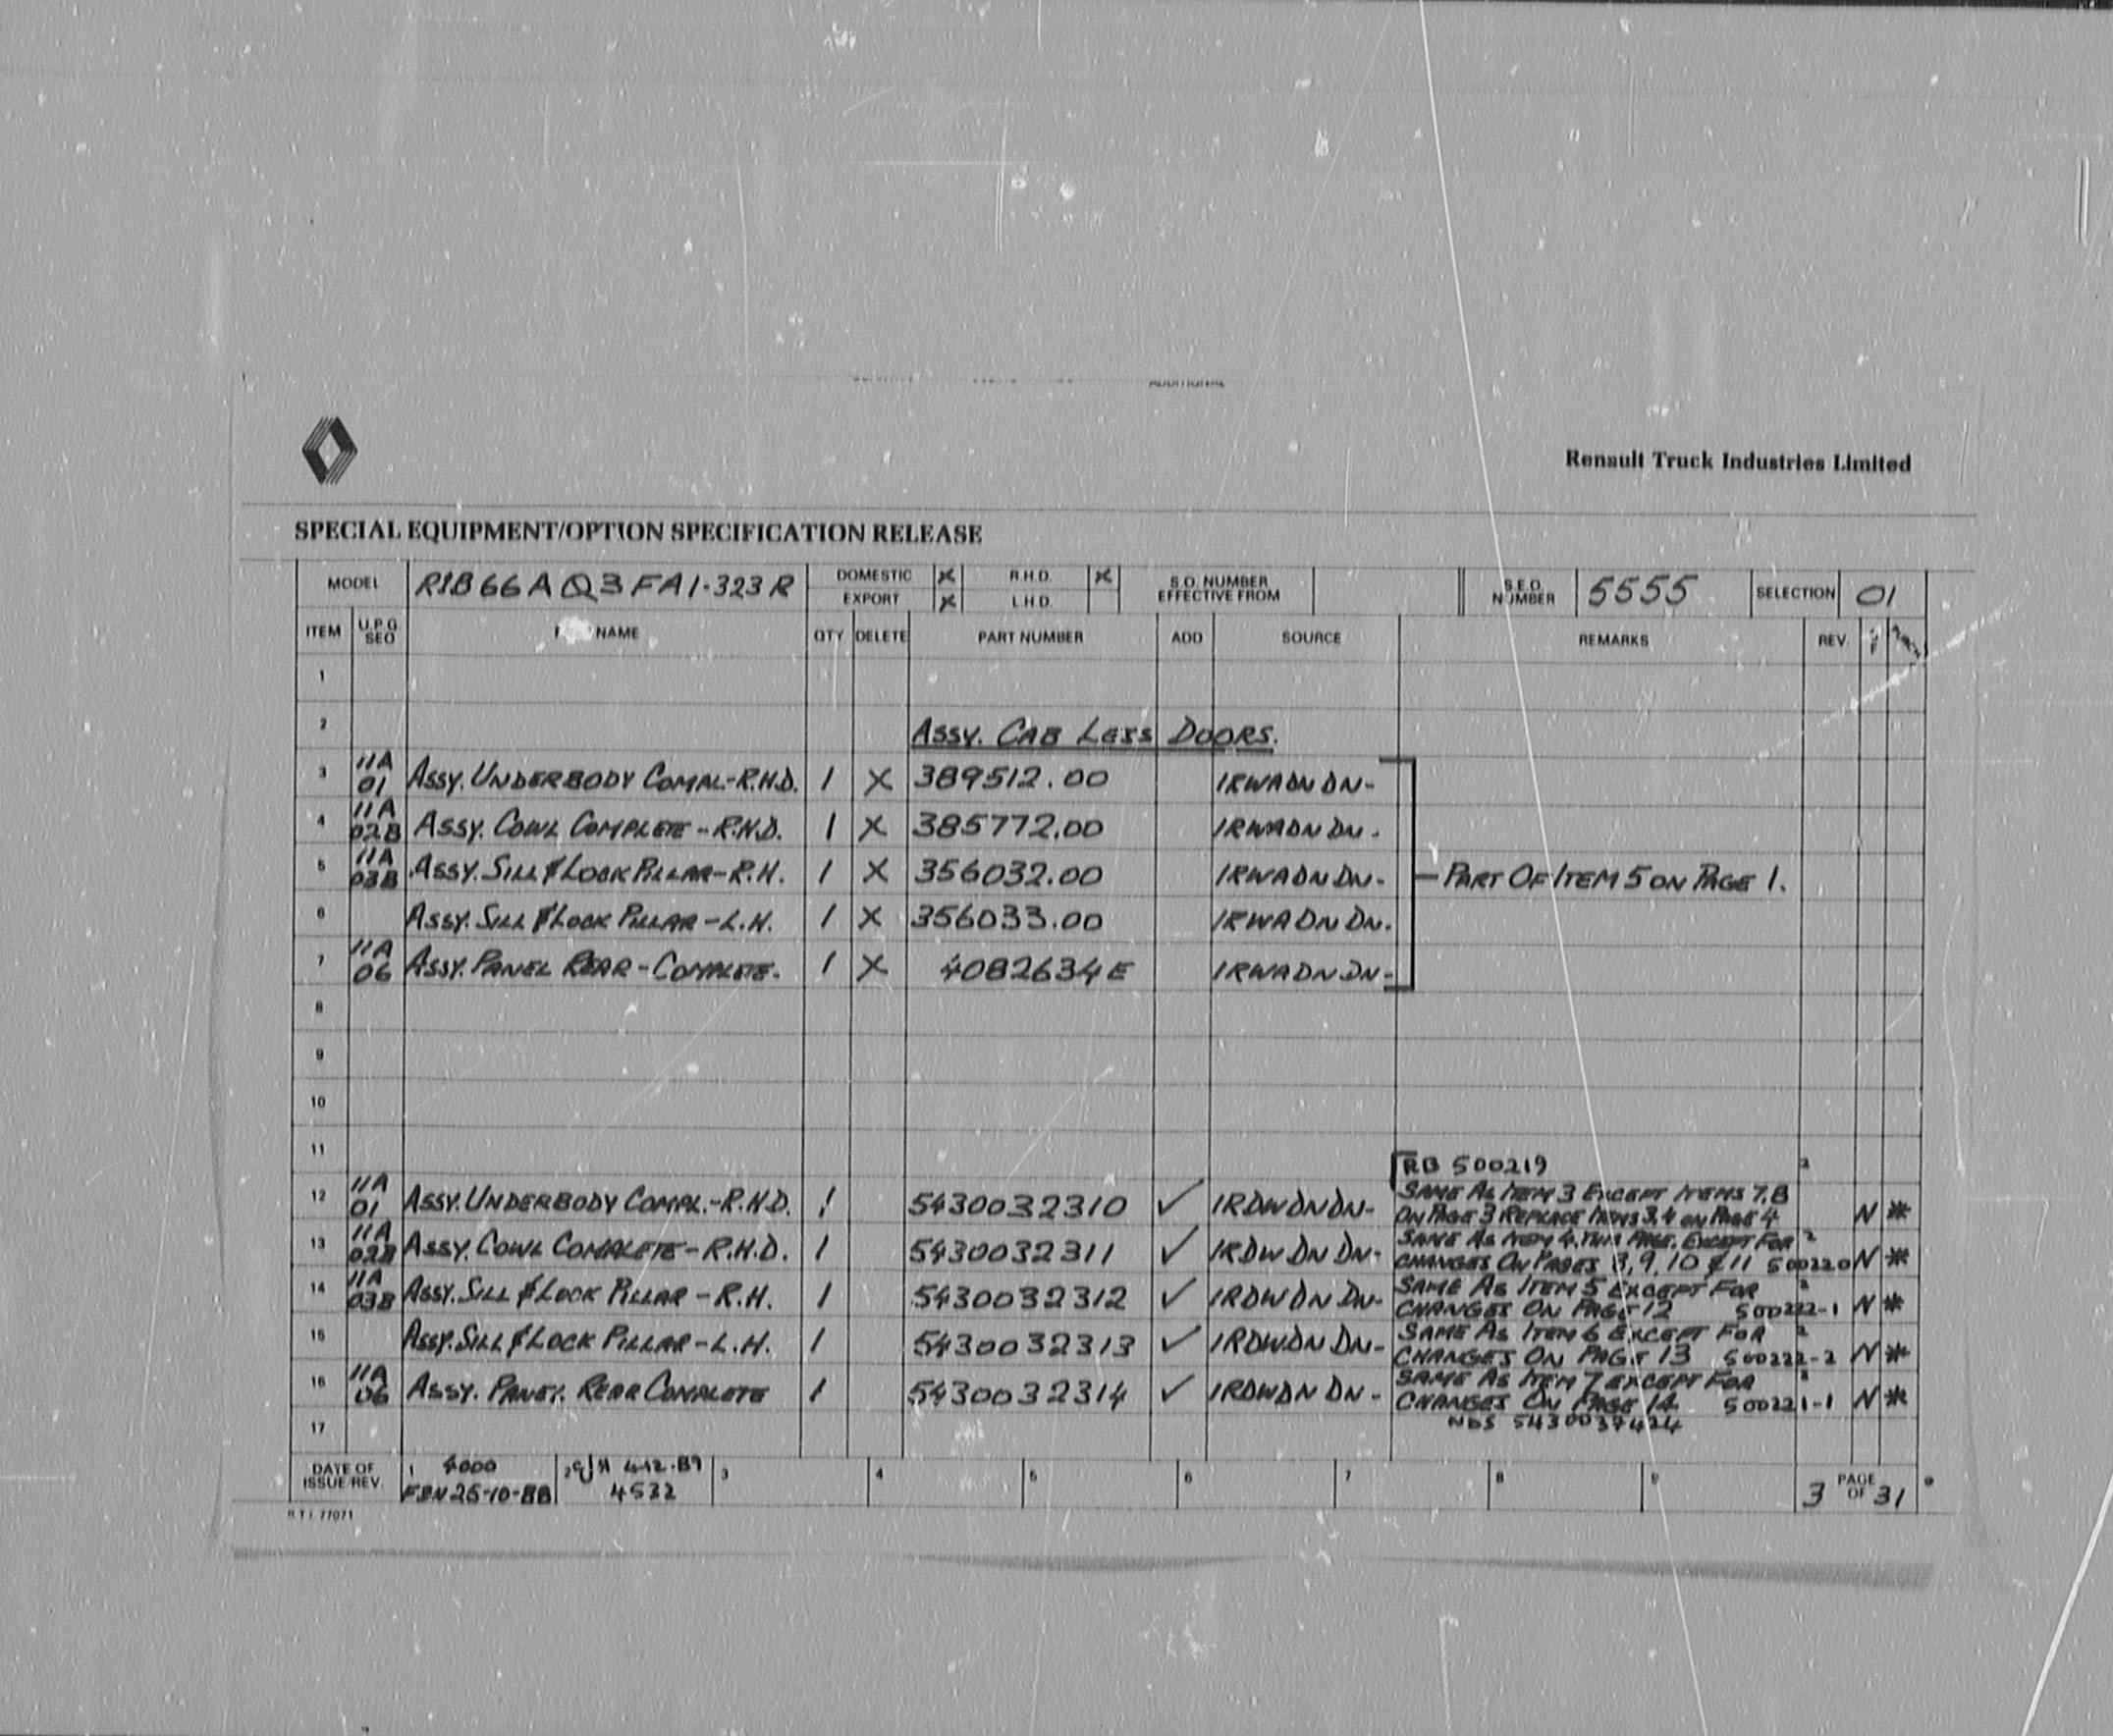 Renault Truck Industries Limited
SPECIAL EQUIPMENT/OPTION SPECIFICATION RELEASE
MODEL R1B66AQ3FA1-323R DOMESTIC X R.H.D. X S.O. NUMBER EFFECTIVE FROM S.E.O. NUMBER 5555 SELECTION 01
EXPORT X L.H.D.
ITEM U.P.G. SEQ NAME QTY DELETE PART NUMBER ADD SOURCE REMARKS REV.
1
2 ASSY. CAB LESS DOORS.
3 11A 01 ASSY. UNDERBODY COMPL.-R.H.D. 1 X 389512.00 IRWADNDN-
4 11A 02B ASSY. COWL COMPLETE-R.H.D. 1 X 385772.00 IRWADNDN-
5 11A 03B ASSY. SILL & LOCK PILLAR-R.H. 1 X 356032.00 IRWADNDN- PART OF ITEM 5 ON PAGE 1.
6 ASSY. SILL & LOCK PILLAR-L.H. 1 X 356033.00 IRWADNDN.
7 11A 06 ASSY. PANEL REAR-COMPLETE. 1 X 4082634E IRWADNDN-
8
9
10
11 RB 500219 2
12 11A 01 ASSY. UNDERBODY COMPL.-R.H.D. 1 5430032310 ✓ IRDWDNDN- SAME AS ITEM 3 EXCEPT ITEMS 7,8
ON PAGE 3 REPLACE ITEMS 3,4 ON PAGE 4 N *
13 11A 02B ASSY. COWL COMPLETE-R.H.D. 1 5430032311 ✓ IRDWDNDN- SAME AS ITEM 4. THIS PAGE. EXCEPT FOR 2
CHANGES ON PAGES 3, 9, 10 & 11 500220 N *
14 11A 03B ASSY. SILL & LOCK PILLAR-R.H. 1 5430032312 ✓ IRDWDNDN- SAME AS ITEM 5 EXCEPT FOR 2
CHANGES ON PAGE 12 500222-1 N *
15 ASSY. SILL & LOCK PILLAR-L.H. 1 5430032313 ✓ IRDWDNDN- SAME AS ITEM 6 EXCEPT FOR 2
CHANGES ON PAGE 13 500222-2 N *
16 11A 06 ASSY. PANEL REAR COMPLETE 1 5430032314 ✓ IRDWDNDN- SAME AS ITEM 7 EXCEPT FOR 2
CHANGES ON PAGE 14 500221-1 N *
17 NDS 5430037424
DATE OF ISSUE/REV. 1 4000 2 4.12.89 3 4 5 6 7 8 9 PAGE
25-10-88 4532 3 OF 31
R.T.I. 77071